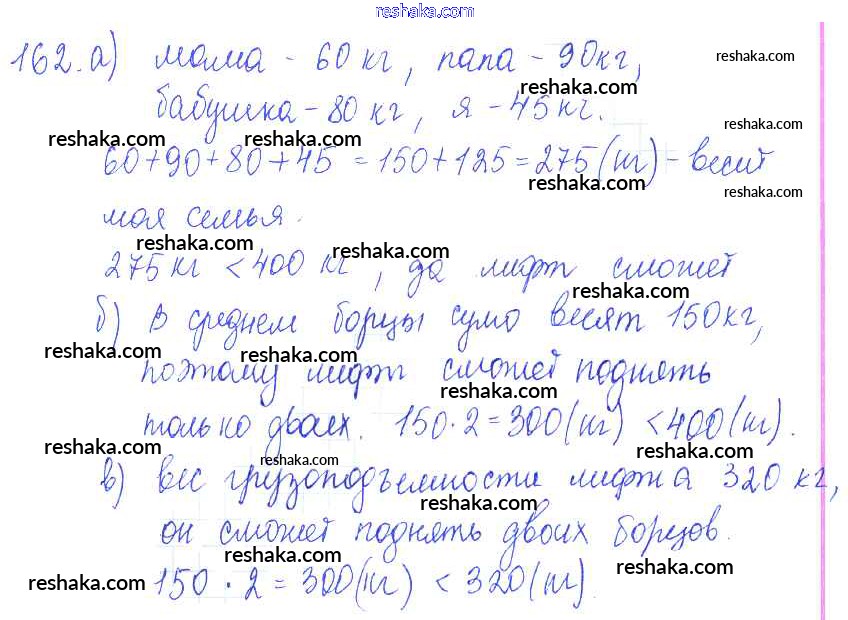 reshaka.com
162. а) мама - 60 кг, папа - 90 кг, reshaka.com
reshaka.com
бабушка - 80 кг, я - 45 кг. reshaka.com
reshaka.com reshaka.com
60+90+80+45 = 150+125 = 275 (кг) - весит
reshaka.com reshaka.com
моя семья.
reshaka.com reshaka.com
275 кг < 400 кг, да лифт сможет
reshaka.com
б) В среднем борцы сумо весят 150 кг,
reshaka.com reshaka.com
поэтому лифт сможет поднять
reshaka.com
только двоих. 150 · 2 = 300 (кг) < 400 (кг).
reshaka.com reshaka.com reshaka.com
в) вес грузоподъемности лифта 320 кг,
reshaka.com
он сможет поднять двоих борцов.
reshaka.com reshaka.com
reshaka.com 150 · 2 = 300 (кг) < 320 (кг).